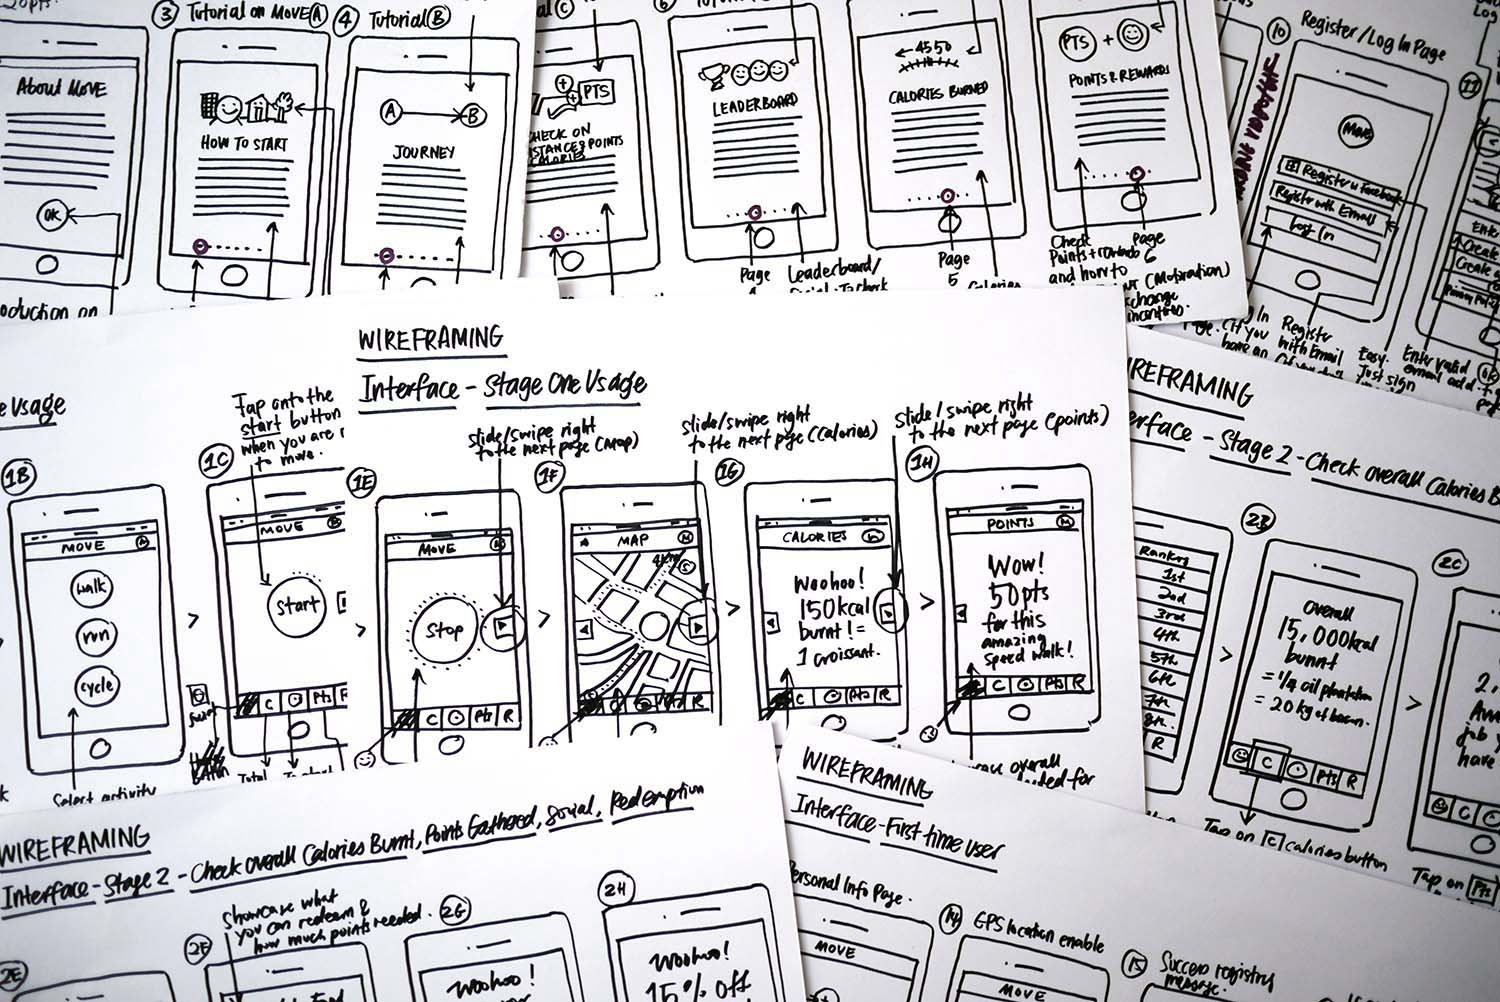 20pts.
About MOVE
OK
roduction on
③ Tutorial on MOVE Ⓐ
HOW TO START
④ Tutorial Ⓑ
A
B
JOURNEY
Ⓒ
PTS
CHECK ON
STANCE & POINTS
CALORIES
LEADERBOARD
Page
Leaderboard/
4550
CALORIES BURNED
Page
5
Calories
PTS +
POINTS & REWARDS
Page
6
Check
Points +
and how to
(Motivation)
xchange
incentives.
⑩ Register/Log In Page
MOVE
Register w Facebook
Register with Email
Log In
In Register
(If you with Email
have an
Easy.
Just sign
Enter valid
email add.
11
Log
Enter
Create
Create
e Usage
WIREFRAMING
Interface - Stage One Usage
1B
MOVE
M
walk
run
cycle
Select activity
Tap onto the
start button
when you are r
to move.
1C
MOVE
Start
C
Pts
R
Total
To start
1E
MOVE
M
Stop
C
Pts
R
slide/swipe right
to the next page (Map)
1F
MAP
M
slide/swipe right
to the next page (Calories)
1G
CALORIES
M
Woohoo!
150kcal
burnt! =
1 croissant.
C
Pts
R
slide/swipe right
to the next page (points)
1H
POINTS
M
Wow!
50pts
for this
amazing
speed walk!
C
Pts
R
overall
for
WIREFRAMING
erface - Stage 2 - Check overall Calories B
Rankings
1st
2nd
3rd
4th
5th
6th
7th
8th
R
2B
overall
15,000kcal
burnt
= 20 kg of bacon.
C
Pts
R
Tap on C calories button
2C
2,
job y
have
C
Pts
R
Tap on Pts
WIREFRAMING
Interface - Stage 2 - Check overall Calories Burnt, Points Gathered, Social, Redemption
2E
2F
showcase what
you can redeem &
how much points needed.
2G
Woohoo!
2H
Woohoo!
15% off
WIREFRAMING
Interface - First time user
Personal Info Page.
MOVE
14 GPS location enable
MOVE
15 Success registry
message.